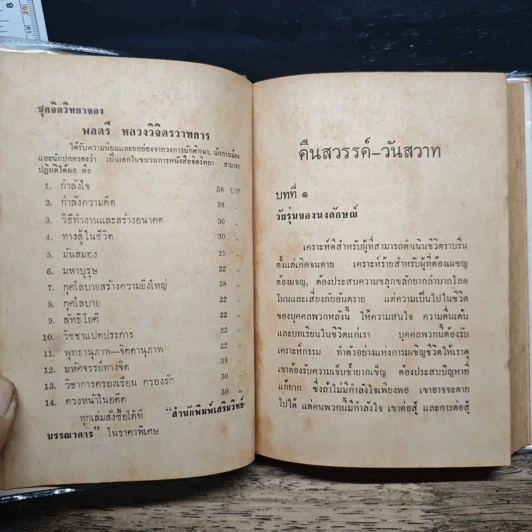 ชุดจิตวิทยาของ
พลตรี หลวงวิจิตรวาทการ
ได้รับความนิยมและยกย่องจากวงการนักศึกษา, นักการเมือง
และนักปกครองว่า เป็นเอกในขบวนการหนังสือจิตวิทยา สามารถ
ปฏิบัติได้ผล คือ
1. กำลังใจ 38 บาท
2. กำลังความคิด 38 "
3. วิธีทำงานและสร้างอนาคต 30 "
4. ทางสู้ในชีวิต 30 "
5. มันสมอง 22 "
6. มหาบุรุษ 22 "
7. กุศโลบายสร้างความยิ่งใหญ่ 38 "
8. กุศโลบาย 22 "
9. ลัทธิโยคี 22 "
10. วิชชาแปดประการ 22 "
11. พุทธานุภาพ—จิตตานุภาพ 22 "
12. มหัศจรรย์ทางจิต 38 "
13. วิชาการครองเรือน ครองรัก 30 "
14. ดวงหน้าในอดีต 30 "
ทุกเล่มสั่งซื้อได้ที่ "สำนักพิมพ์เสริมวิทย์-
บรรณาคาร" ในราคาพิเศษ
คืนสวรรค์–วันสวาท
บทที่ ๑
วัยรุ่นของนงลักษณ์
เคราะห์ดีสำหรับผู้ที่สามารถดำเนินชีวิตราบรื่น
ตั้งแต่เกิดจนตาย เคราะห์ร้ายสำหรับผู้ที่ต้องเผชิญ
ต้องผจญ, ต้องประสบความขลุกขลักยากลำบากโลด
โผนและเสี่ยงภัยอันตราย แต่ความเป็นไปในชีวิต
ของบุคคลพวกหลังนี้ ให้ความสนใจ ความตื่นเต้น
และบทเรียนในชีวิตแก่เรา บุคคลพวกนี้ต้องรับ
เคราะห์กรรม ทำตัวอย่างแห่งการเผชิญชีวิตให้เราดู
เขาต้องรับความเจ็บช้ำยากเข็ญ ต้องประสบปัญหาที่
แก้ยาก ซึ่งถ้าไม่มีกำลังใจเพียงพอ เขาอาจจะตาย
ไปได้ แต่คนพวกนี้มีกำลังใจ เขาต่อสู้ และการต่อสู้